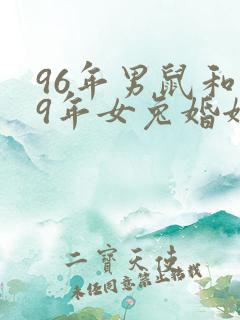 96年男鼠和
9年女兔婚姻
二寶天使
未经同意禁止转载